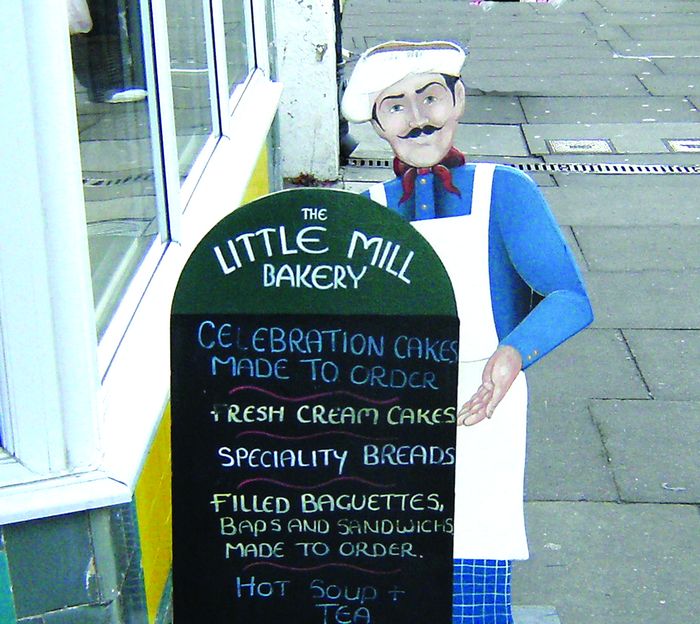 THE
LITTLE MILL
BAKERY
CELEBRATION CAKES
MADE TO ORDER
FRESH CREAM CAKES
SPECIALITY BREADS
FILLED BAGUETTES,
BAPS AND SANDWICHS
MADE TO ORDER.
HOT SOUP +
TEA